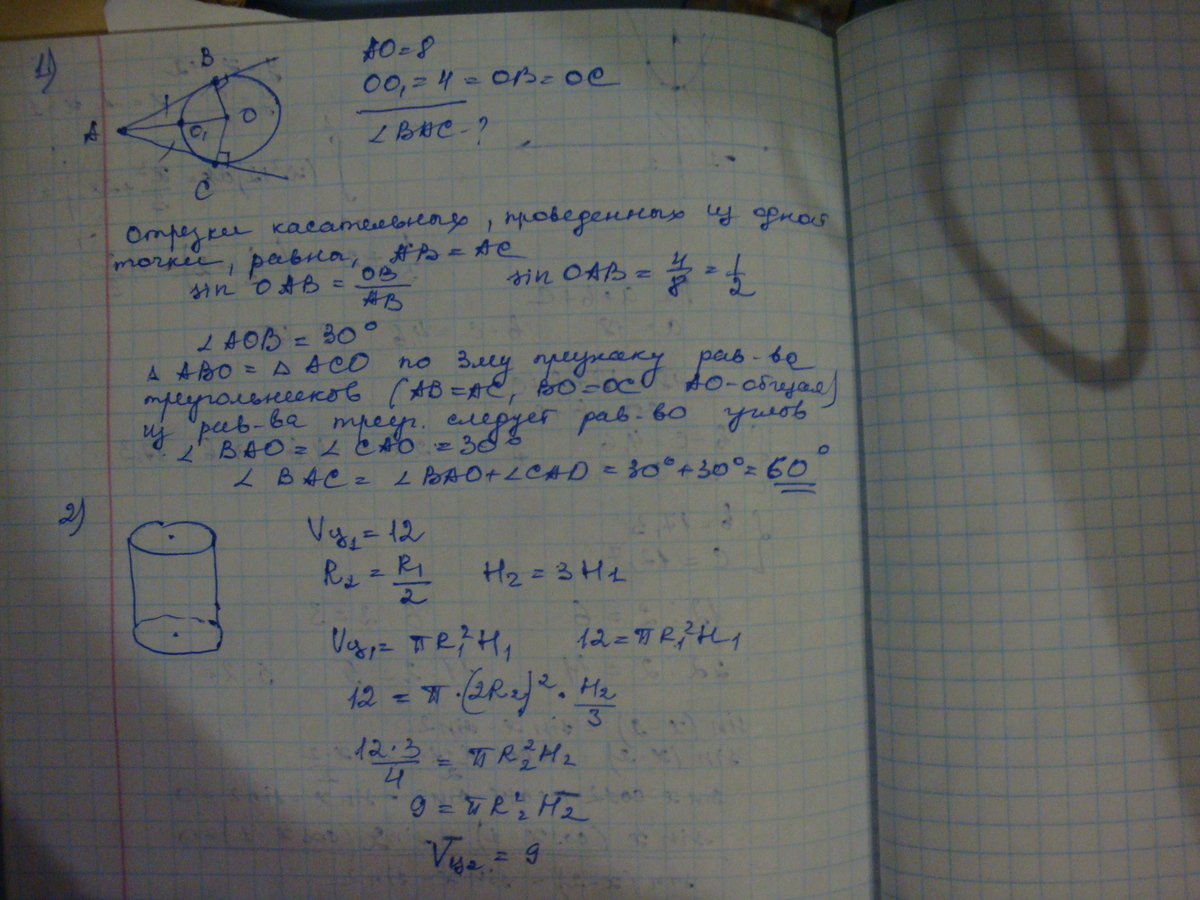 1)
B
A
O₁
O
C
AO = 8
OO₁ = 4 = OB = OC
∠BAC - ?
Отрезки касательных, проведенных из одной
точки, равны, AB = AC
sin OAB = OB/AB    sin OAB = 4/8 = 1/2
∠AOB = 30°
△ ABO = △ ACO по 3му признаку рав-ва
треугольников (AB=AC, BO=OC AO-общая)
из рав-ва треуг. следует рав-во углов
∠ BAO = ∠ CAO = 30°
∠ BAC = ∠BAO+∠CAO = 30°+30° = 60°
2)
Vц₁ = 12
R₂ = R₁/2    H₂ = 3H₁
Vц₁ = πR₁²H₁    12 = πR₁²H₁
12 = π·(2R₂)²·H₂/3
12·3/4 = πR₂²H₂
9 = πR₂²H₂
Vц₂ = 9